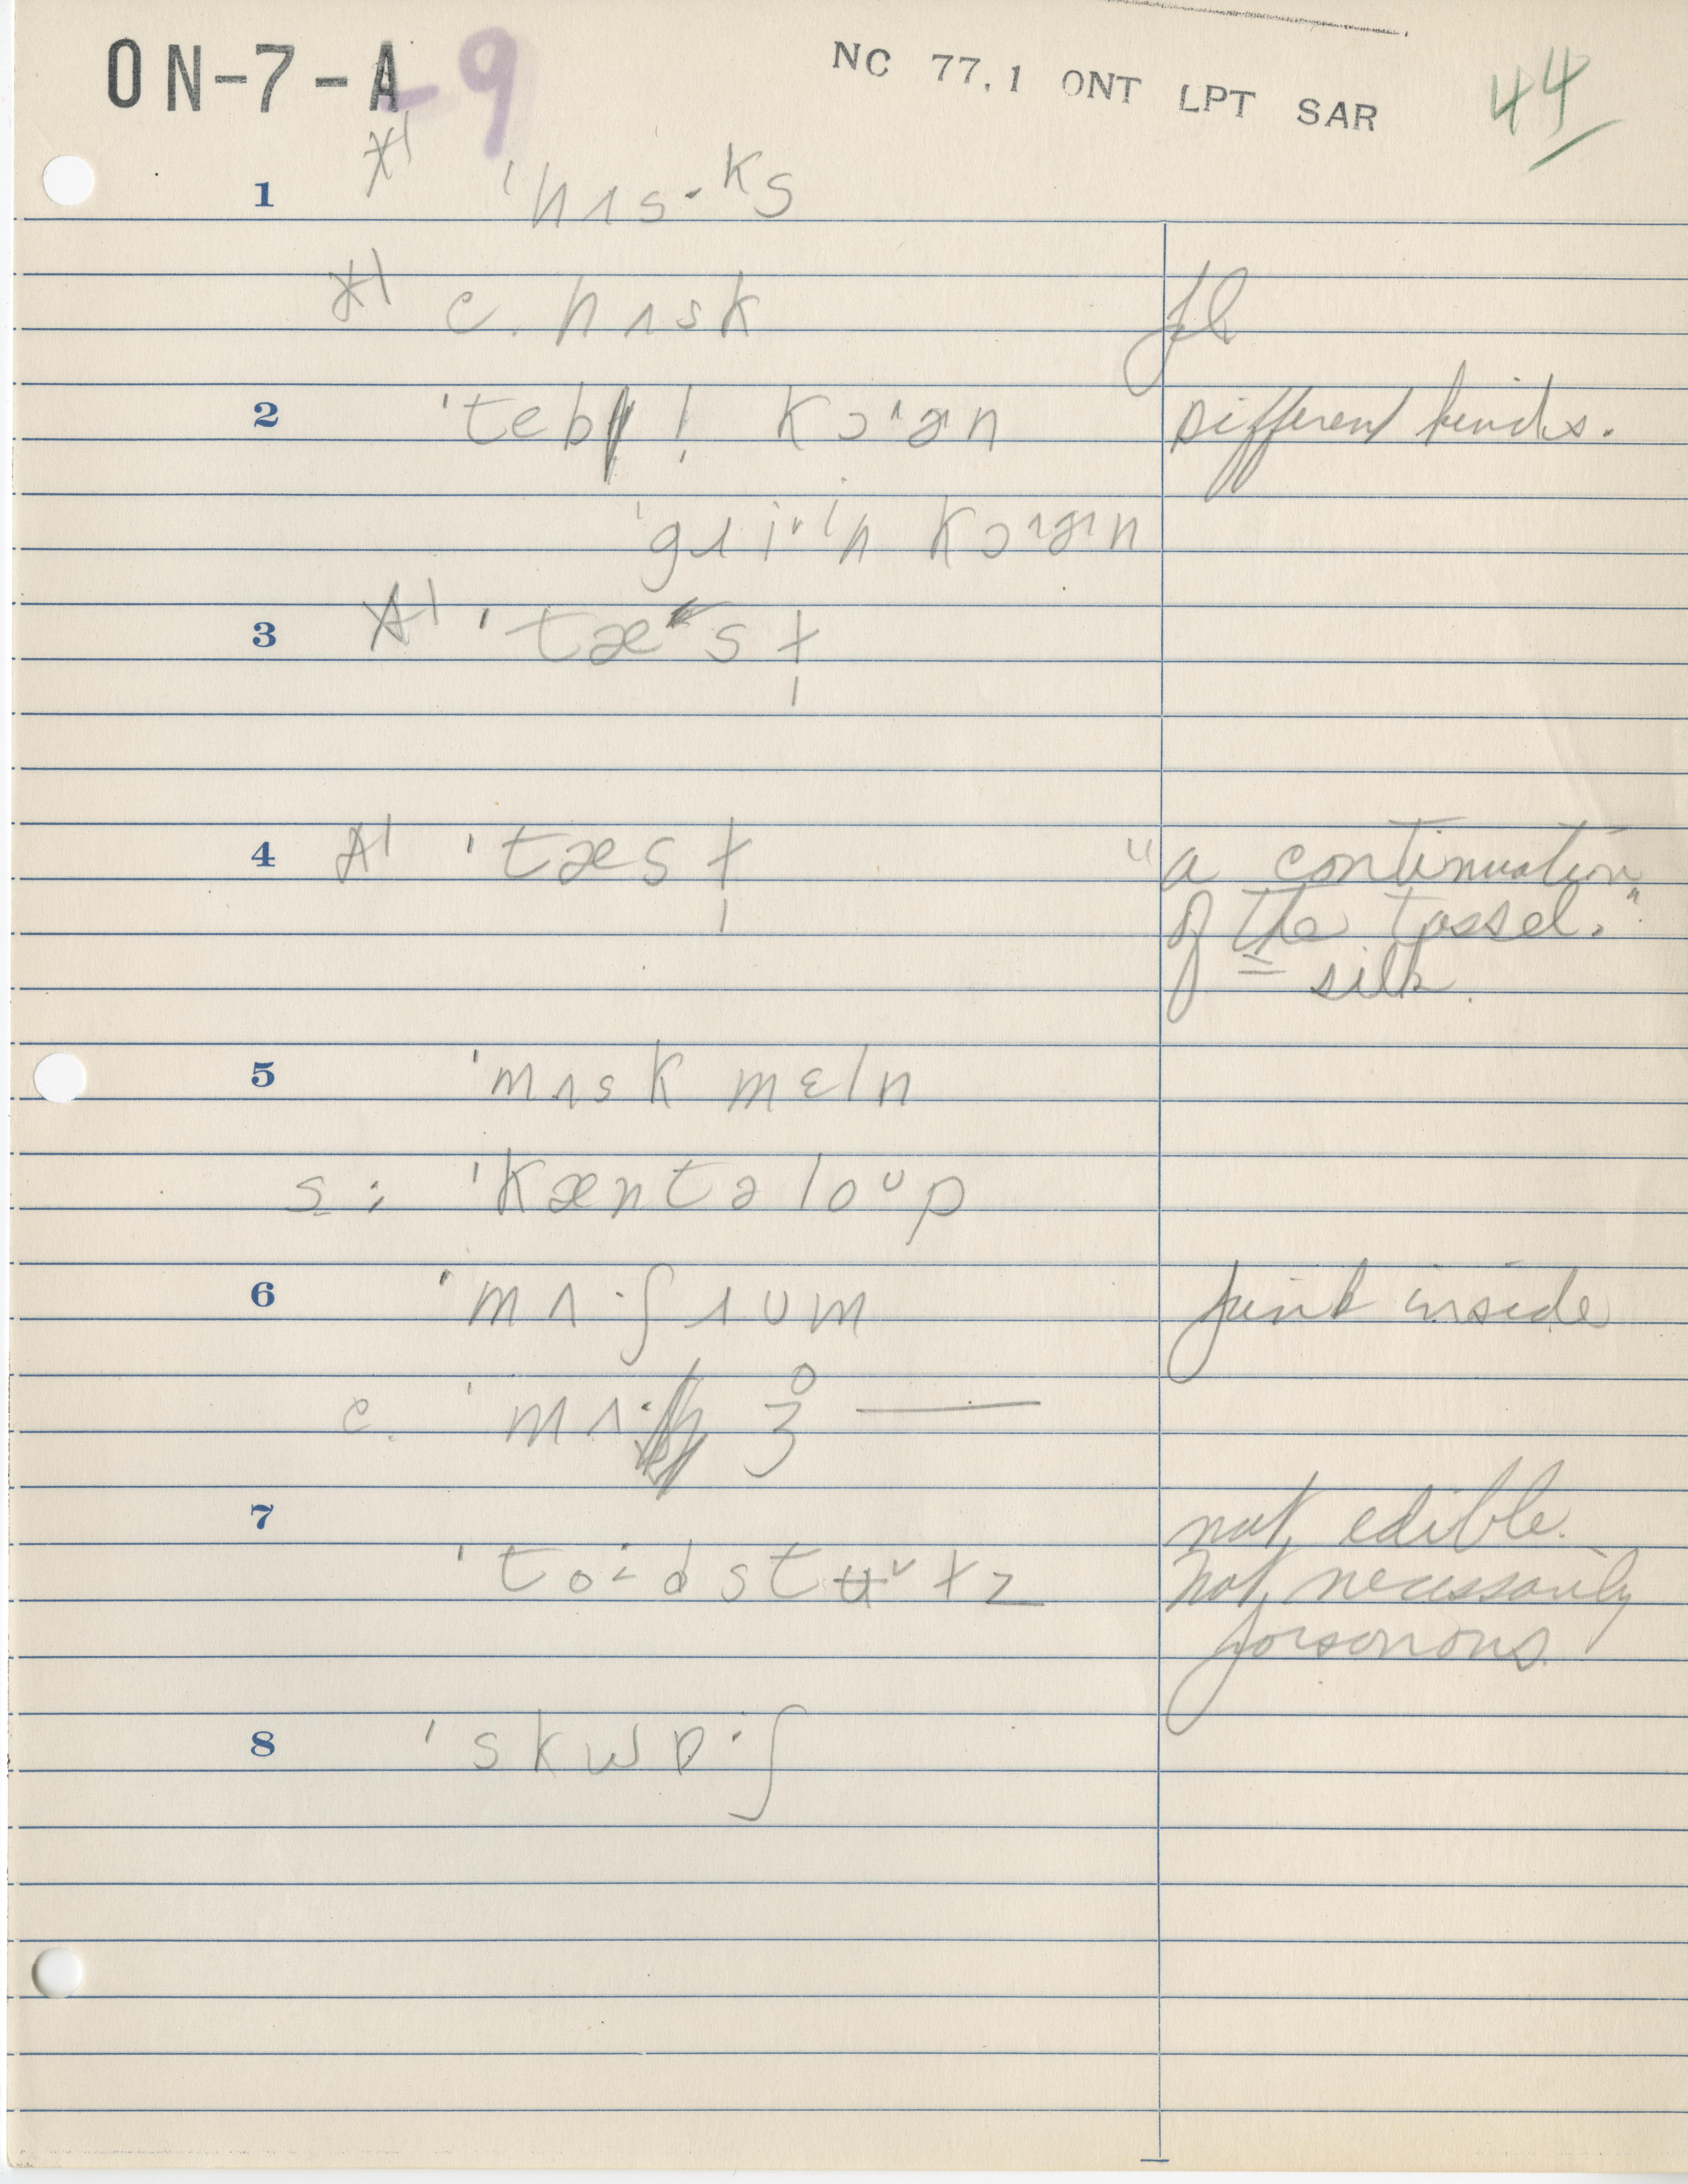 ON-7-A-9
NC 77.1 ONT LPT SAR
44
1 ˈhʌs·ks
c. hʌsk pl
2 ˈtebl̩ kɔ˞ən Different kinds.
3 ˈtæˑsɫ̩
4 ˈtæsɫ̩ "a continuation
of the tassel."
= silk.
5 ˈmʌsk mɛln
s: ˈkæntəloᴜp
6 ˈmʌ·ʃ pink inside
c. ˈmʌ· ʒ̊ —
7 not edible.
ˈto·dstʉᵛɫz not necessarily
poisonous.
8 ˈskwɒ·ʃ